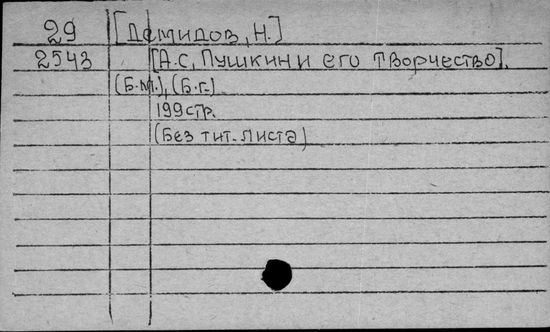 29 [Демидов, Н.]
2543 [А.С, Пушкин и его творчество].
(Б.м.), (Б.г.)
199стр.
(Без тит. листа)